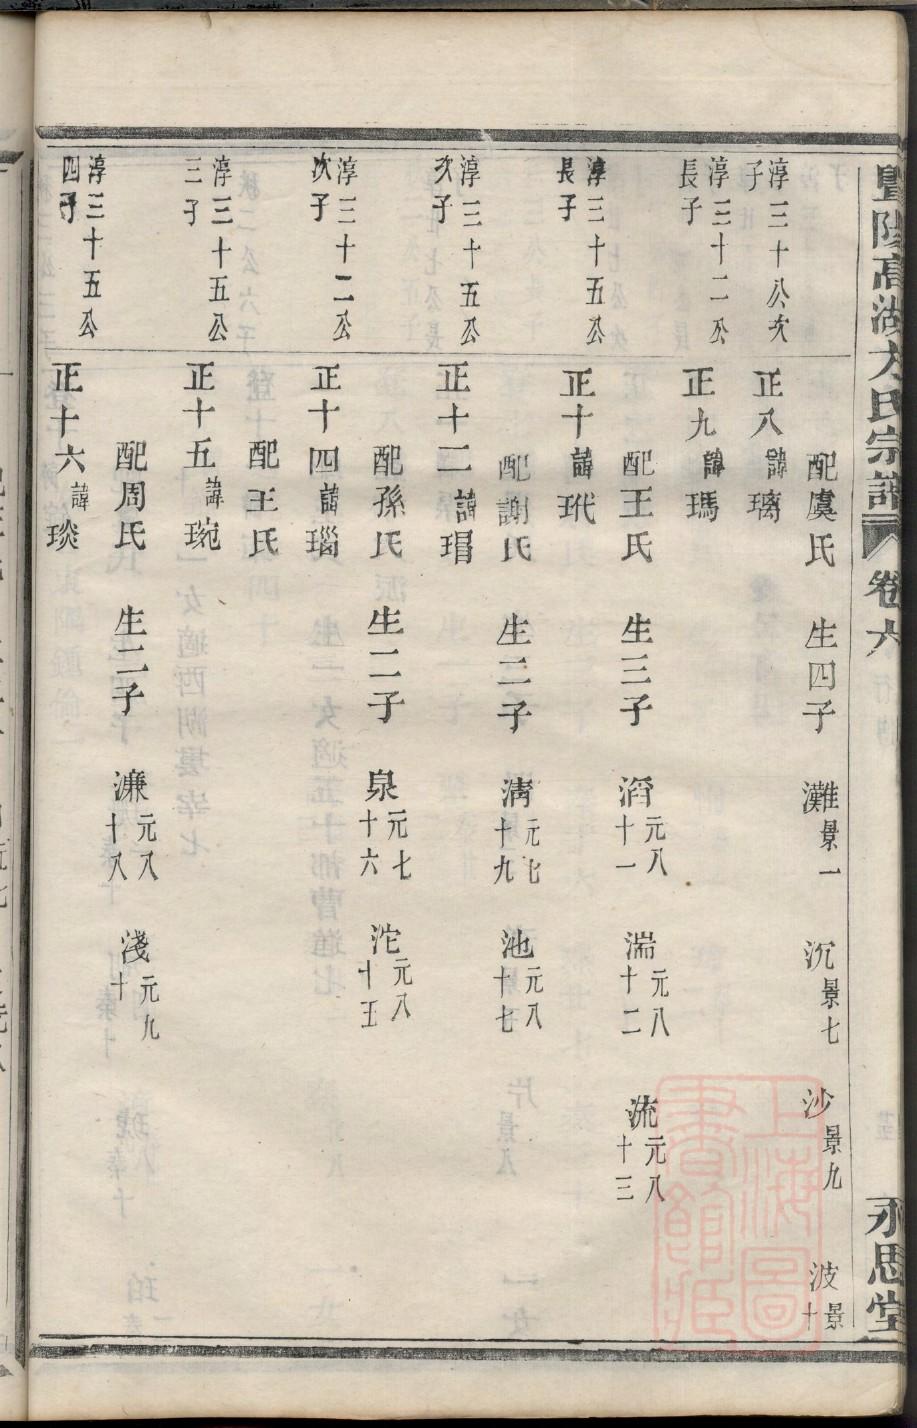 暨陽高湖方氏宗譜 卷六 永思堂
配虞氏 生四子 灘景一 沉景七 沙景九 波景十
淳三十公次子 正八諱璃
淳三十二公長子 正九諱瑪
配王氏 生三子 滔元八十一 湍元八十二 流元八十三
淳三十五公長子 正十諱玳
配謝氏 生二子 清元七十九 池元八十七
淳三十五公次子 正十二諱瑁
配孫氏 生二子 泉元七十六 沱元八十五
淳三十二公次子 正十四諱瑙
配王氏
淳三十五公三子 正十五諱琬
配周氏 生二子 濂元八十八 淺元九十
淳三十五公四子 正十六諱琰
上海圖書館藏